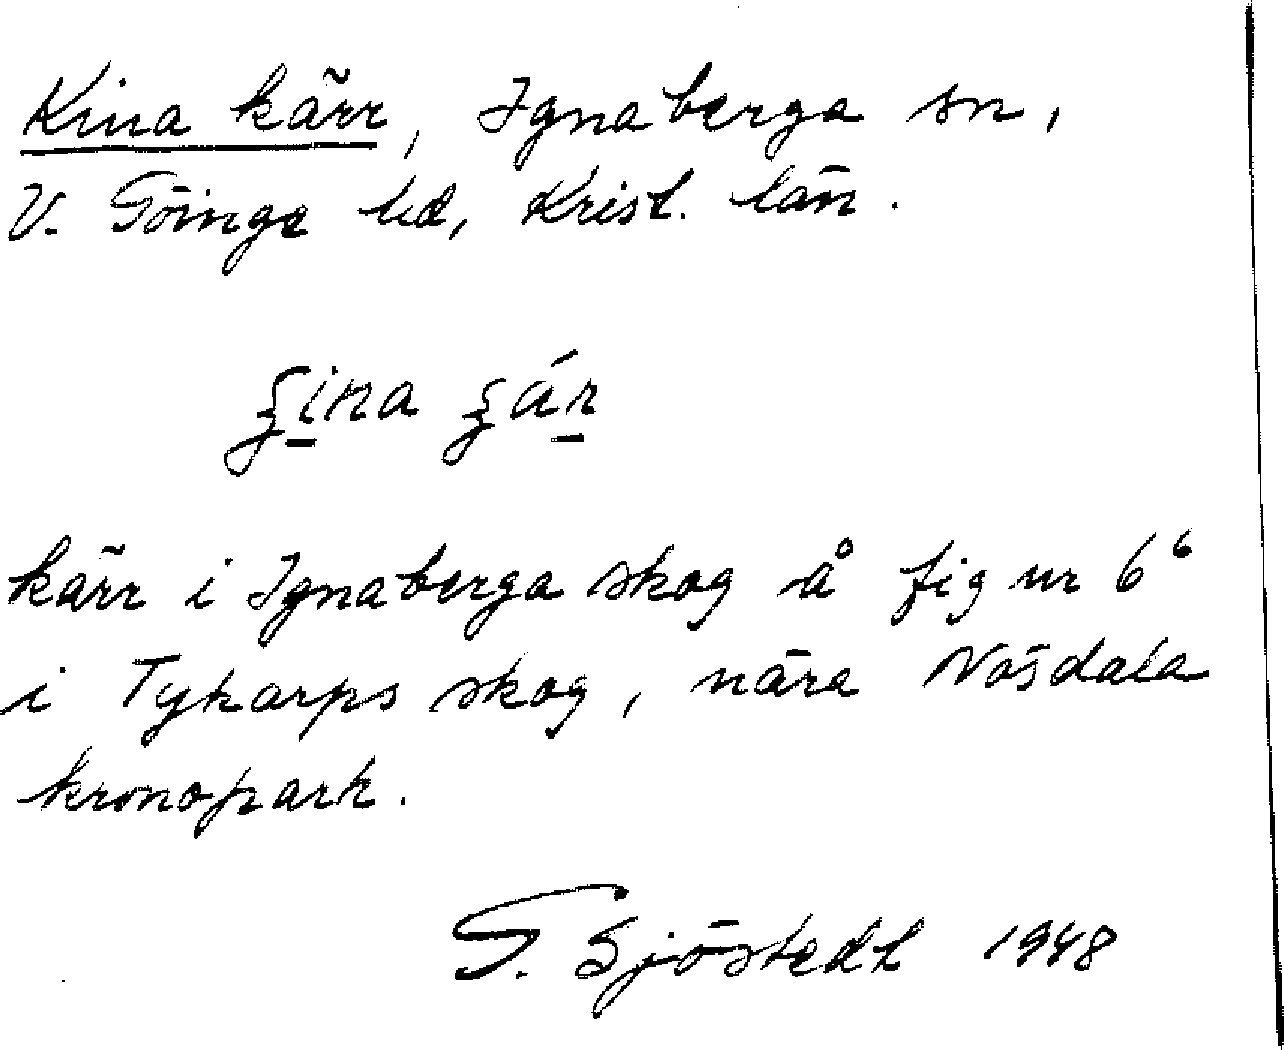 Kina kärr, Ignaberga sn,
V. Göinge hd, Krist. län.
ξina ξár
kärr i Ignaberga skog å fig ur 6⁶
i Tykarps skog, nära Nösdala
kronopark.
G. Sjöstedt 1948